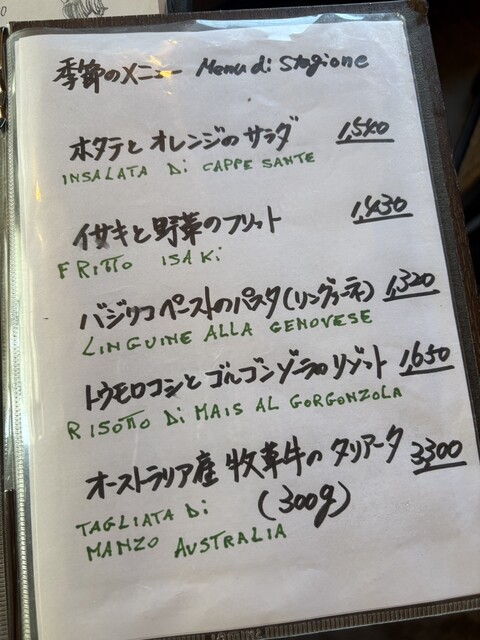 季節のメニュー Menu di Stagione
ホタテとオレンジのサラダ 1,540
INSALATA Di CAPPE SANTE
イサキと野菜のフリット 1,430
FRITTO ISAKi
バジリコペーストのパスタ(リングイーネ) 1,320
LINGUINE ALLA GENOVESE
トウモロコシとゴルゴンゾーラのリゾット 1,650
RISOTTO Di MAIS AL GORGONZOLA
オーストラリア産 牧草牛のタリアータ 3,300
(300g)
TAGLIATA Di
MANZO AUSTRALIA